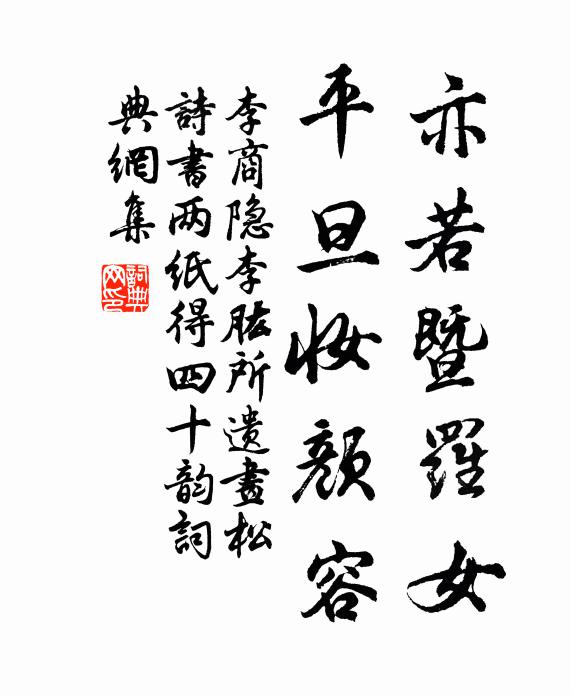 亦若暨羅女
平旦妝顏容
李商隐李肱所遺畫松
詩書两紙得四十韵詞
典網集
詞典网印